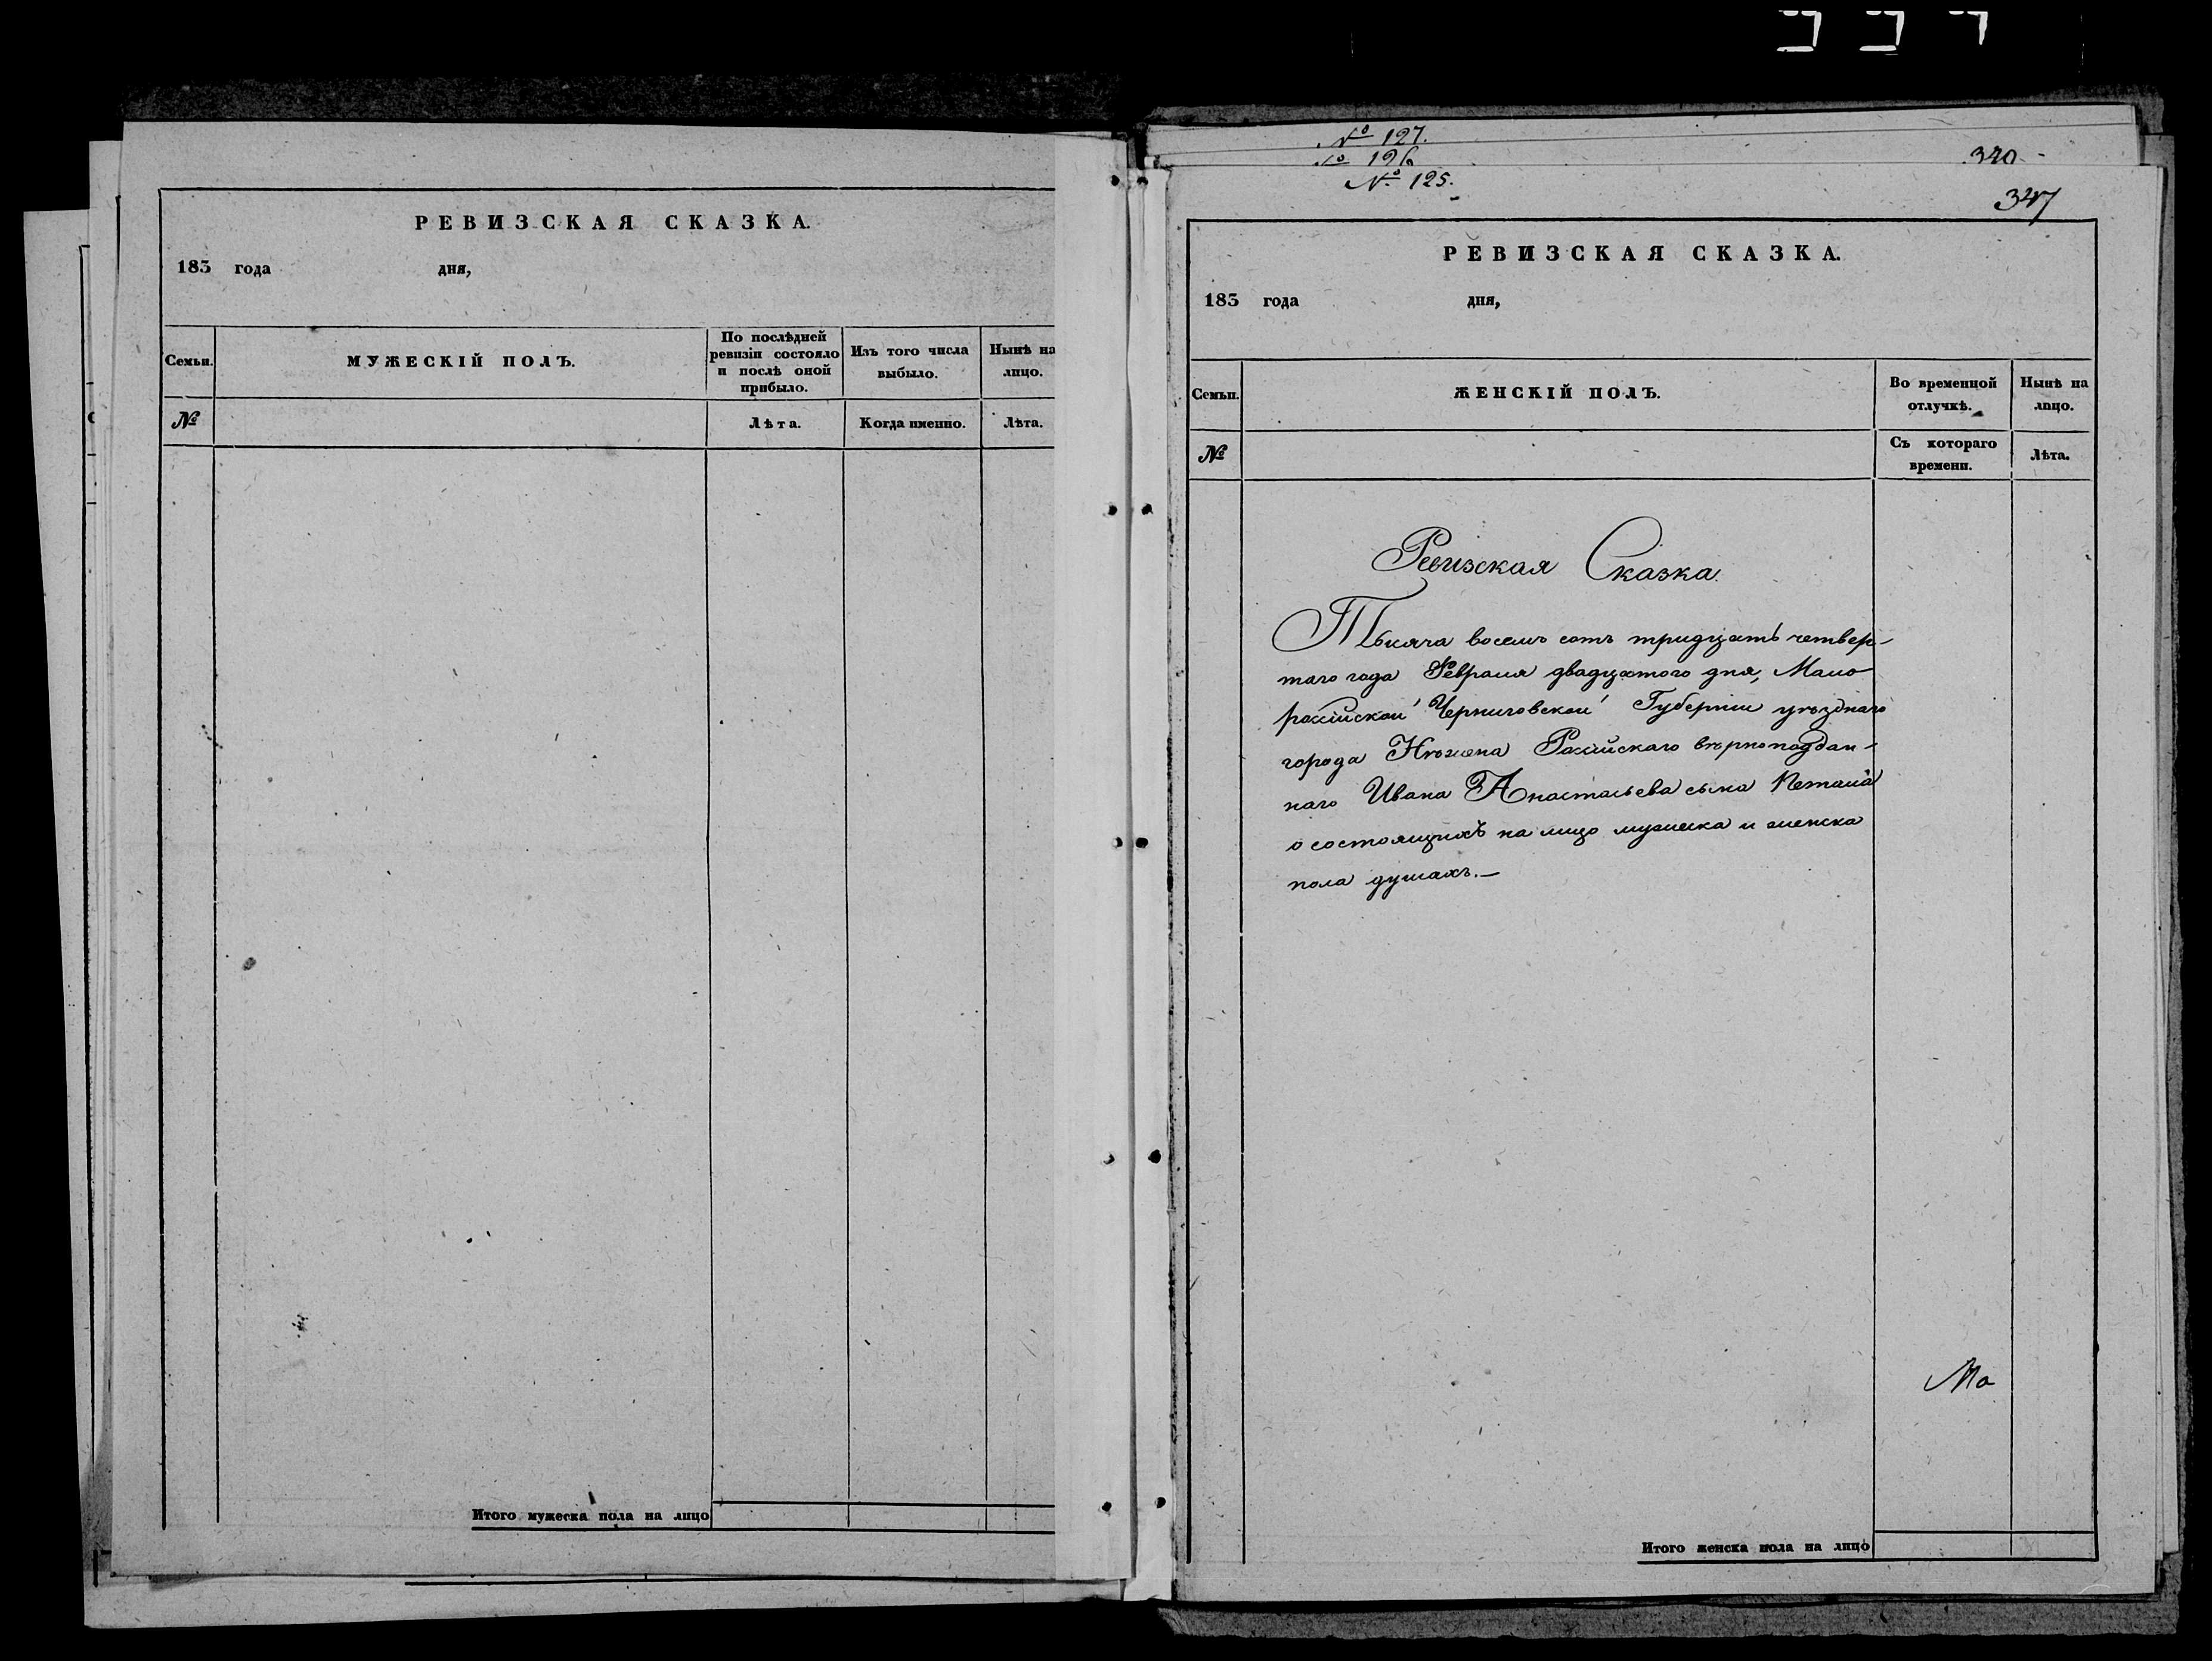 РЕВИЗСКАЯ СКАЗКА.
183 года дня,
Семьи.
МУЖЕСКІЙ ПОЛЪ.
По послѣдней
ревизіи состояло
и послѣ оной
прибыло.
Изъ того числа
выбыло.
Нынѣ на
лицо.
№
Лѣта.
Когда именно.
Лѣта.
Итого мужеска пола на лицо
№ 127.
№ 126
№ 125.
347
РЕВИЗСКАЯ СКАЗКА.
183 года дня,
Семьи.
ЖЕНСКІЙ ПОЛЪ.
Во временной
отлучкѣ.
Нынѣ на
лицо.
№
Съ котораго
времени.
Лѣта.
Ревизская Сказка.
Тысяча восемь сотъ тридцать четвер-
таго года Февраля двадцатого дня, Мало
російской Черниговской Губерніи уѣзднаго
города Нѣжина Російскаго вѣрноподдан-
наго Ивана Анастасьева сына
о состоящихъ на лицо мужеска и женска
пола душахъ.—
Ма
Итого женска пола на лицо